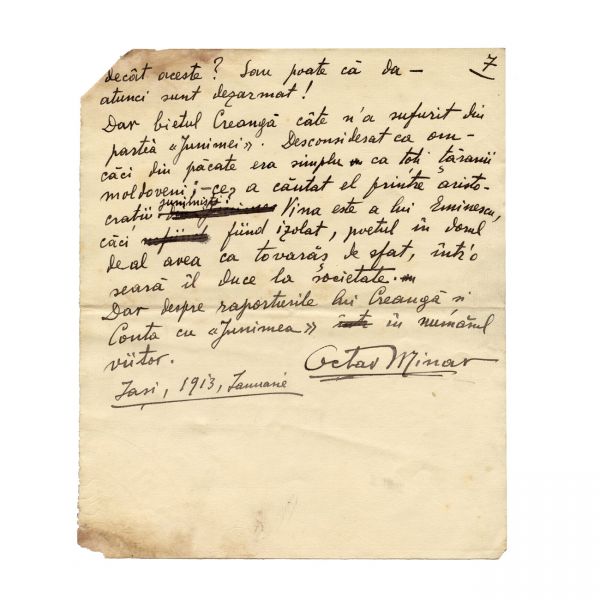 7
decât aceste? Sau poate că da —
atunci sunt dezarmat!
Dar bietul Creangă câte n'a suferit din
partea «Junimei». Desconsiderat ca om —
căci din păcate era simplu ca toti țăranii
moldoveni; — ce a căutat el printre aristo-
cratii junimiști Vina este a lui Eminescu,
căci fiind izolat, poetul în dorul
de al avea ca tovarăș de sfat, într'o
seară îl duce la societate. —
Dar despre raporturile lui Creangă si
Conta cu «Junimea» în numărul
viitor.
Octav Minar
Iași, 1913, Ianuarie